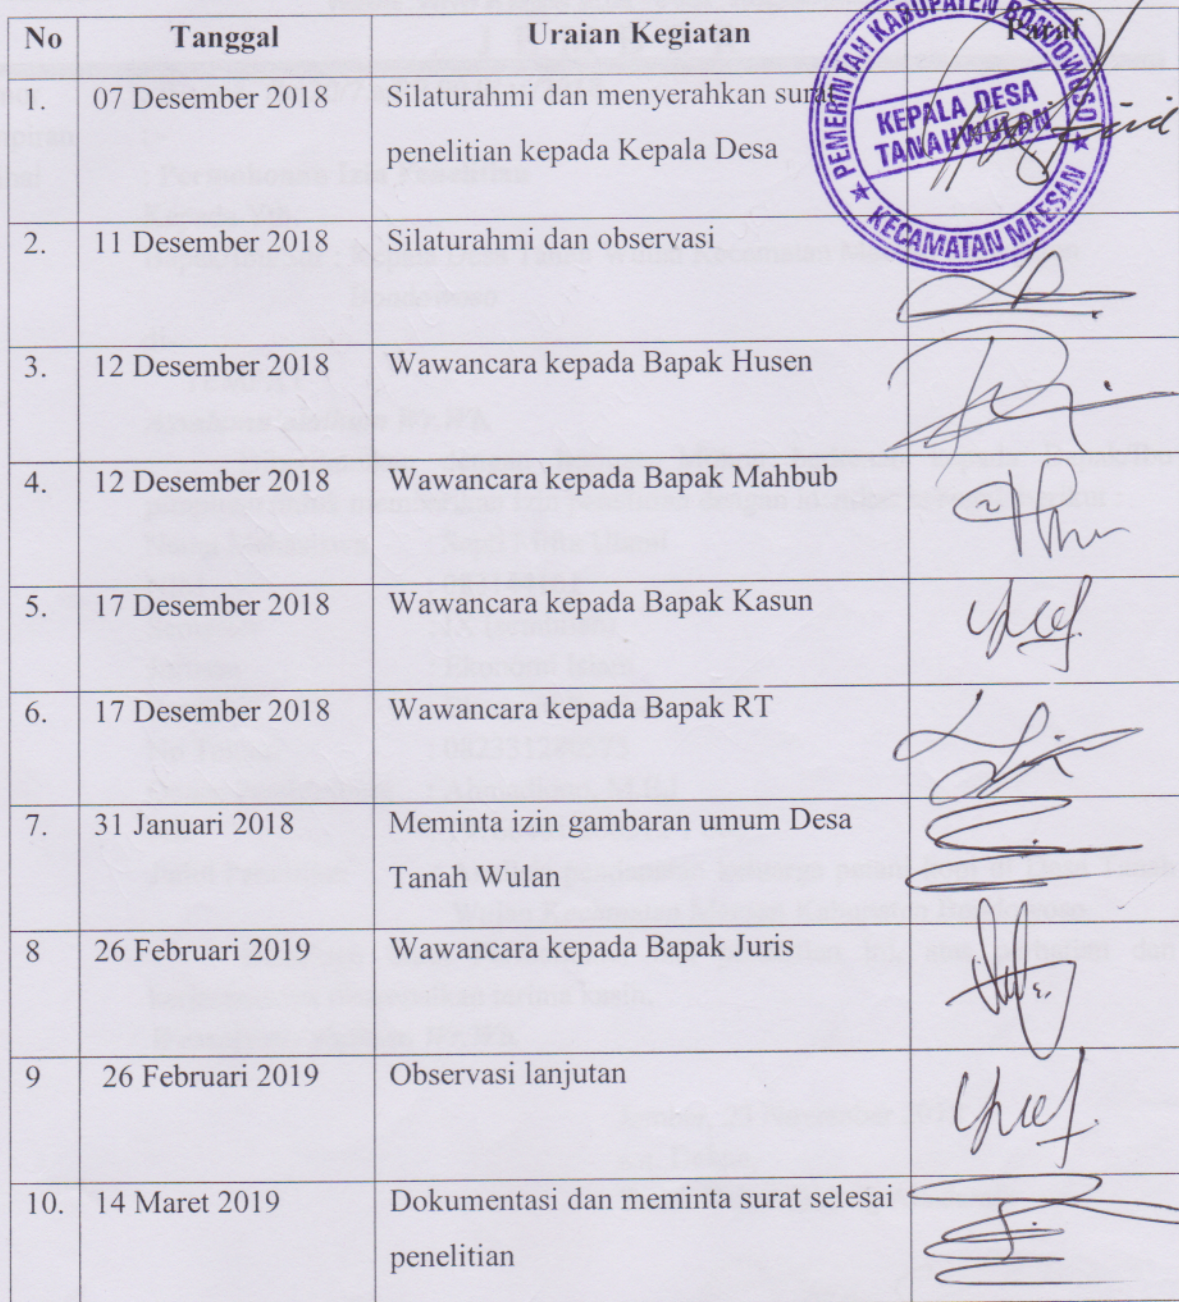 No Tanggal Uraian Kegiatan Paraf
PEMERINTAH KABUPATEN BONDOWOSO
KEPALA DESA
TANAHWULAN
KECAMATAN MAESAN
1. 07 Desember 2018 Silaturahmi dan menyerahkan surat
penelitian kepada Kepala Desa
2. 11 Desember 2018 Silaturahmi dan observasi
3. 12 Desember 2018 Wawancara kepada Bapak Husen
4. 12 Desember 2018 Wawancara kepada Bapak Mahbub
5. 17 Desember 2018 Wawancara kepada Bapak Kasun
6. 17 Desember 2018 Wawancara kepada Bapak RT
7. 31 Januari 2018 Meminta izin gambaran umum Desa
Tanah Wulan
8 26 Februari 2019 Wawancara kepada Bapak Juris
9 26 Februari 2019 Observasi lanjutan
10. 14 Maret 2019 Dokumentasi dan meminta surat selesai
penelitian